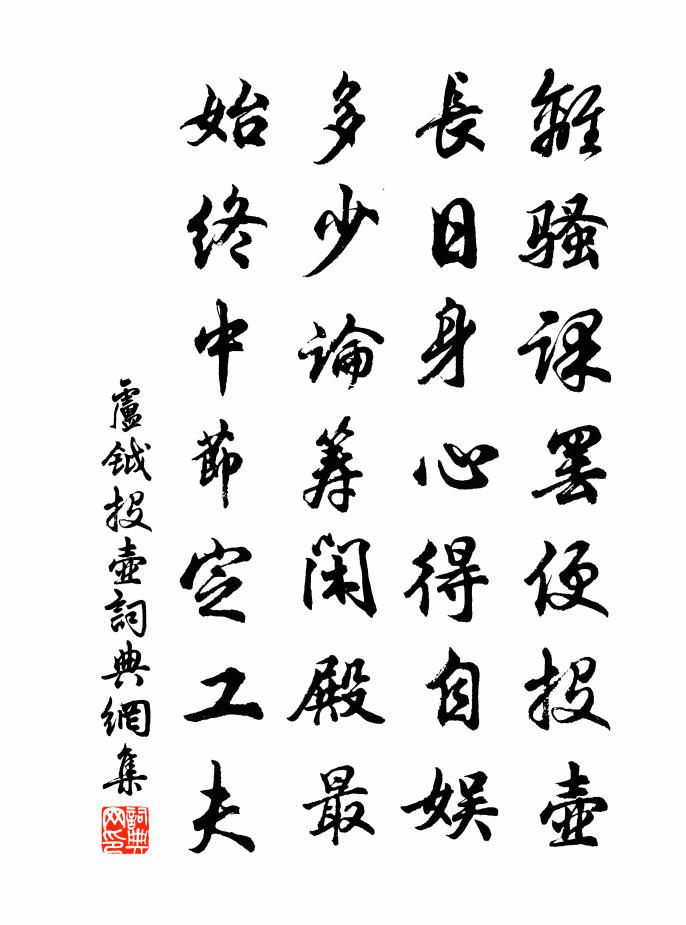 離騷課罷便投壺
長日身心得自娛
多少論籌閑殿最
始終中節定工夫
盧鉞投壺詞典網集
詞典网印